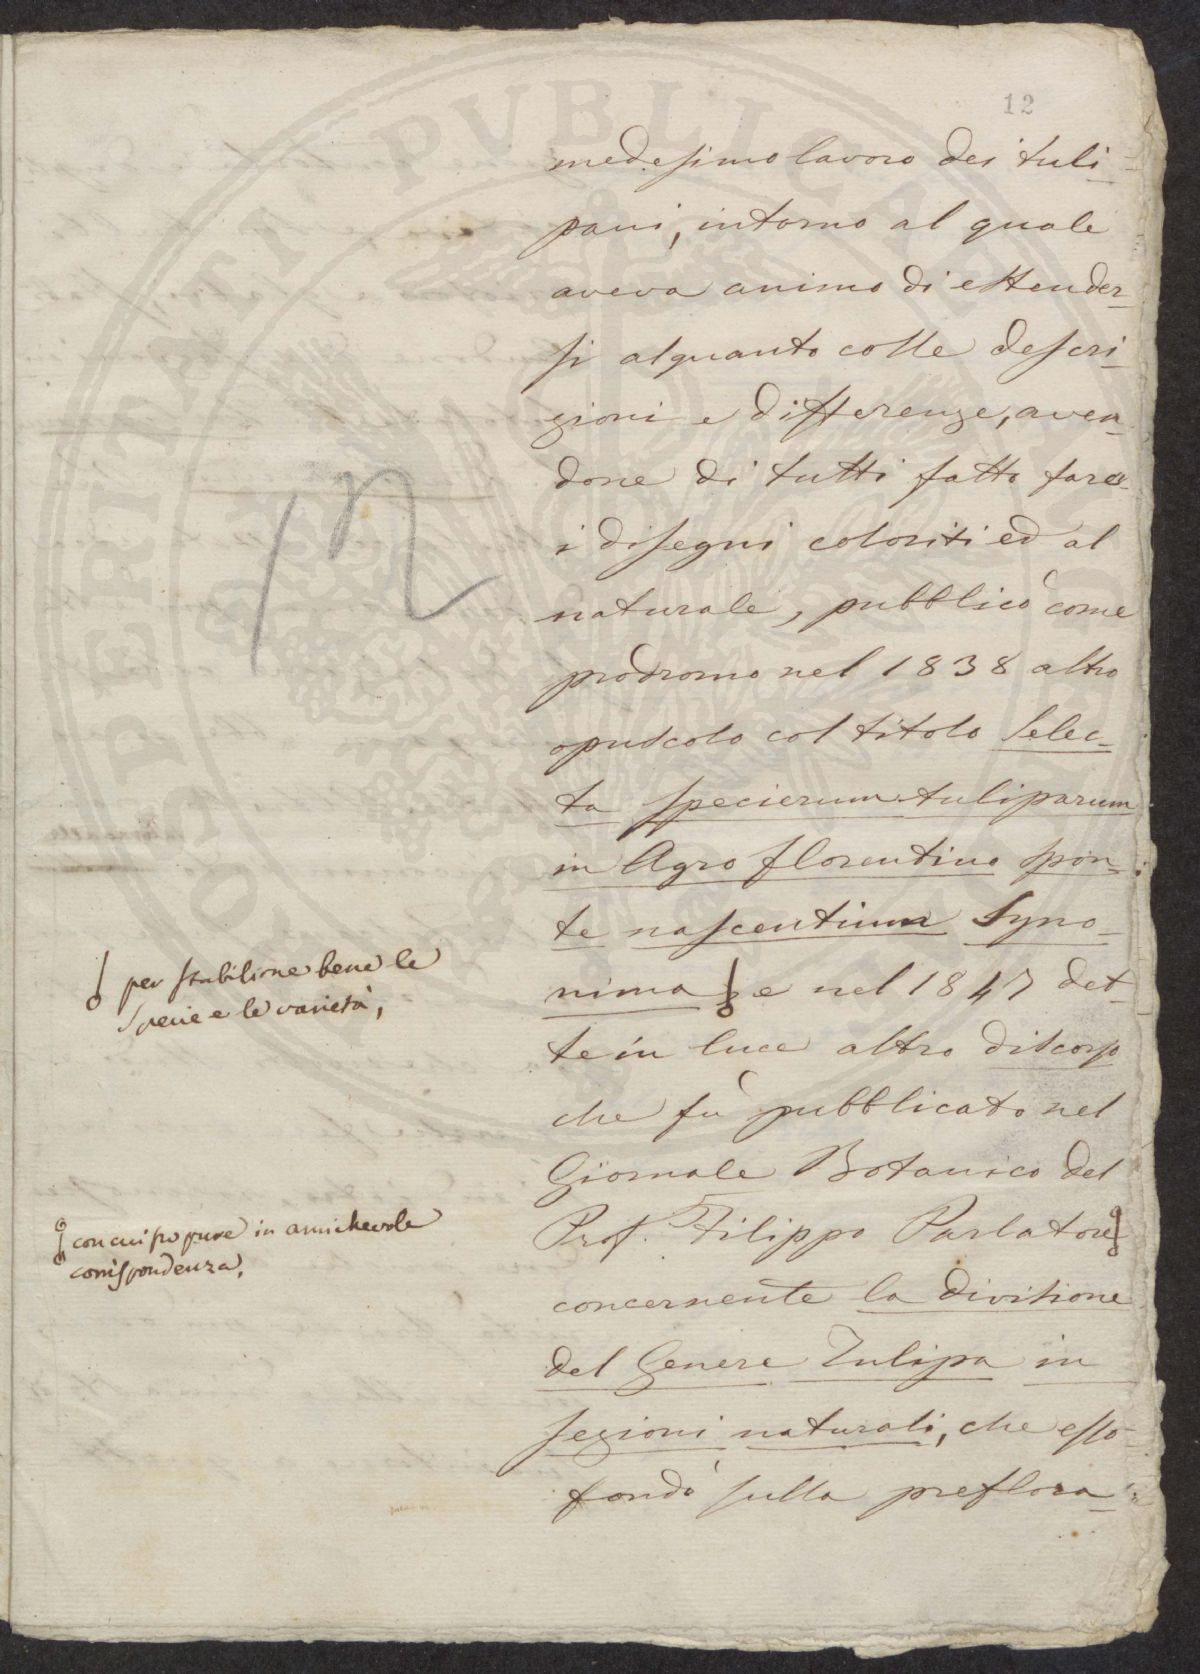 12
medesimo lavoro dei tuli-
pani, intorno al quale
aveva animo di estender-
si alquanto colle descri-
zioni e differenze, aven-
done di tutti fatto fare
i disegni coloriti ed al
naturale, pubblicò come
prodromo nel 1838 altro
opuscolo col titolo Selec-
ta specierum tuliparum
in Agro florentino spon-
te nascentium Syno-
nima, e nel 1847 det-
te in luce altro discorso
che fù pubblicato nel
Giornale Botanico del
Prof. Filippo Parlatore
concernente la divisione
del Genere Tulipa in
sezioni naturali, che esso
fondò sulla preflora-
12
per stabilirne bene le
specie e le varietà,
con cui fu pure in amichevole
corrispondenza,
PUBLICAE